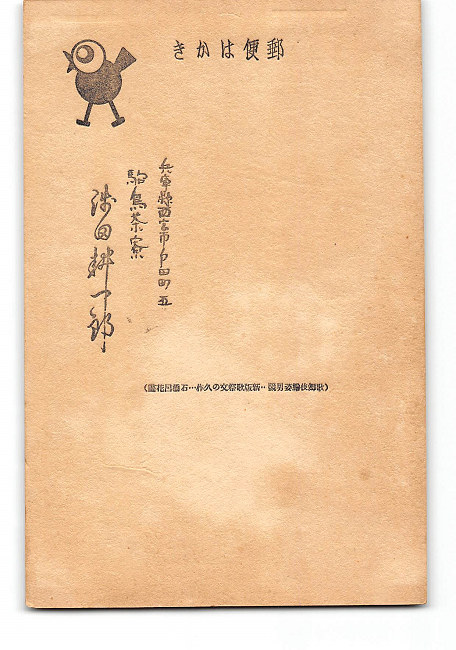 郵便はかき
兵庫縣西宮市戸田町五
駒鳥茶寮
浅田耕一郎
(歌舞伎輪姿男競‥新版歌祭文の久作…石橋呂花畫)